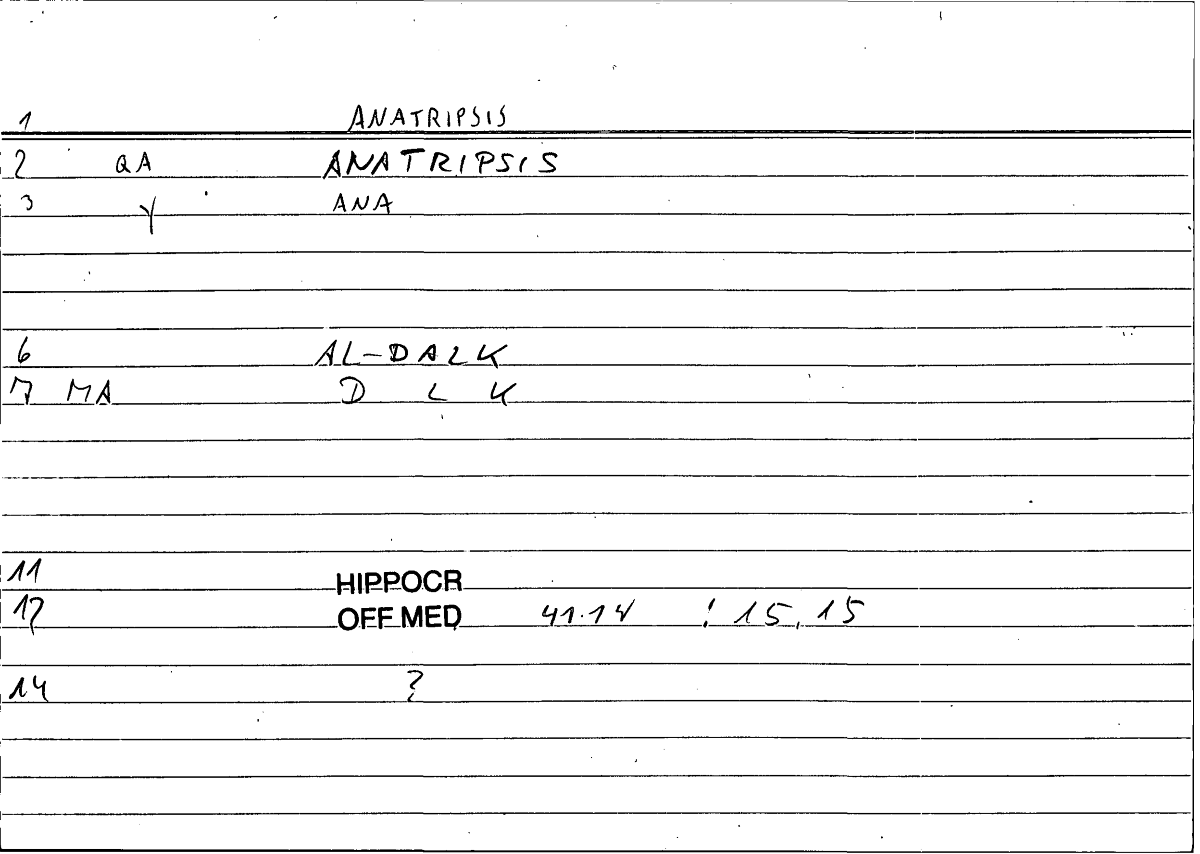 1 ANATRIPSIS
2 QA ANATRIPSIS
3 Y ANA
6 AL-DALK
7 MA D L K
11 HIPPOCR
12 OFF MED 41.14 ! 15,15
14 ?